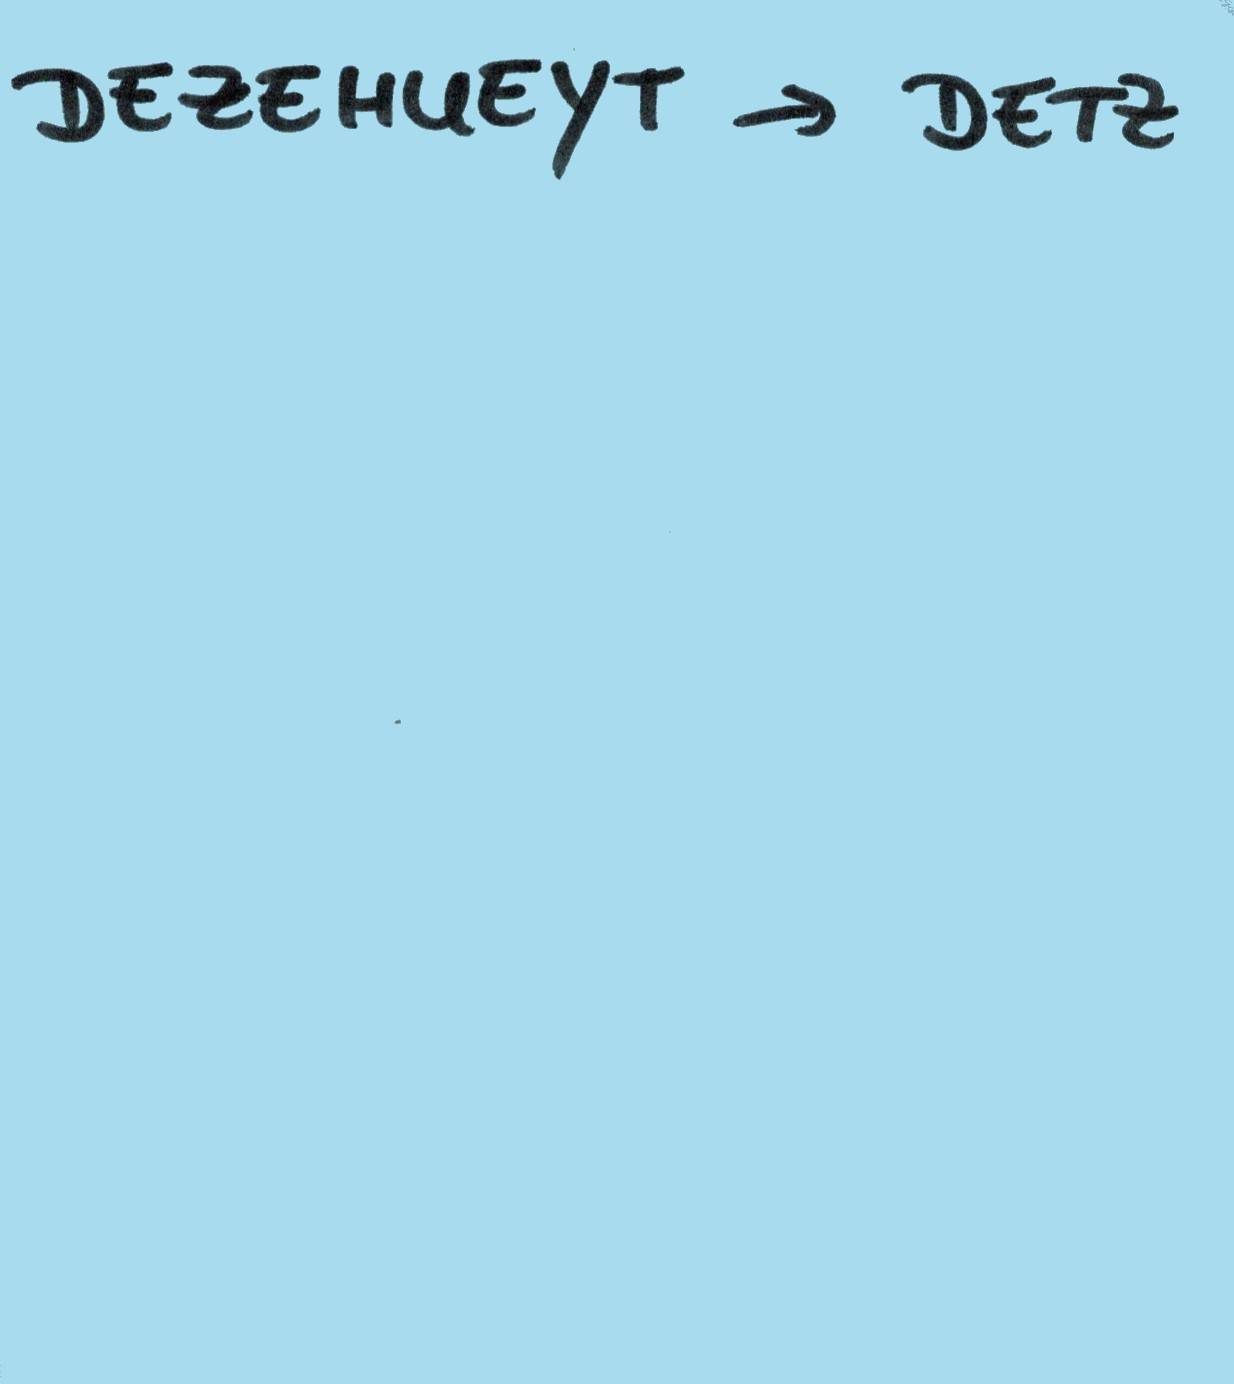 DEZEHUEYT → DETZ